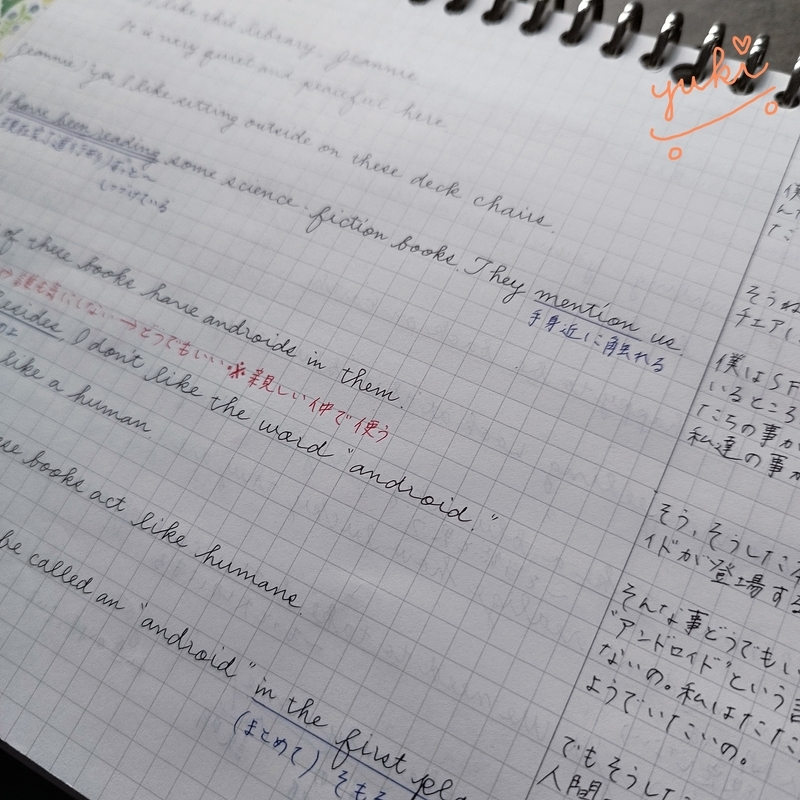 I like this library, Jeannie.
It is very quiet and peaceful here.
Jeannie! you I like sitting outside on these deck chairs.
have been reading some science-fiction books. They mention us.
つづけている
手身近に触れる
of these books have androids in them.
誰も気にしない→どうでもいい ※親しい仲で使う
Besides, I don't like the word "android."
like a human.
books act like humans.
be called an "android" in the first
(まとめて) そもそ
yuki
チェアに
僕はSF
いるところ
たちの事が
私達の事が
そう、そうした
イドが登場する
そんな事どうでもい
"アンドロイド"という言
ないの。私はただ
ようでいたいの。
でもそうした
人間